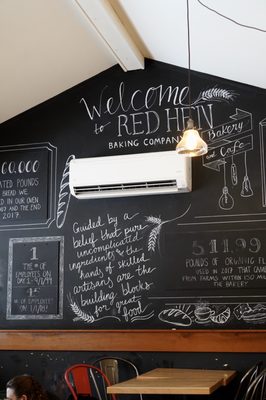 Welcome
to RED HEN
BAKING COMPANY
Bakery
and Cafe
00,000
POUNDS OF
BREAD WE
IN OUR OVEN
AND THE END
2017
1
THE # OF
EMPLOYEES
ON DAY 1
THE # OF
EMPLOYEES
Guided by a
belief that pure
uncomplicated
ingredients & the
hands of skilled
artisans are the
building blocks
for great
food
511,99
POUNDS OF ORGANIC
USED IN 2017 THAT CAME
FROM FARMS WITHIN 150
THE BAKERY